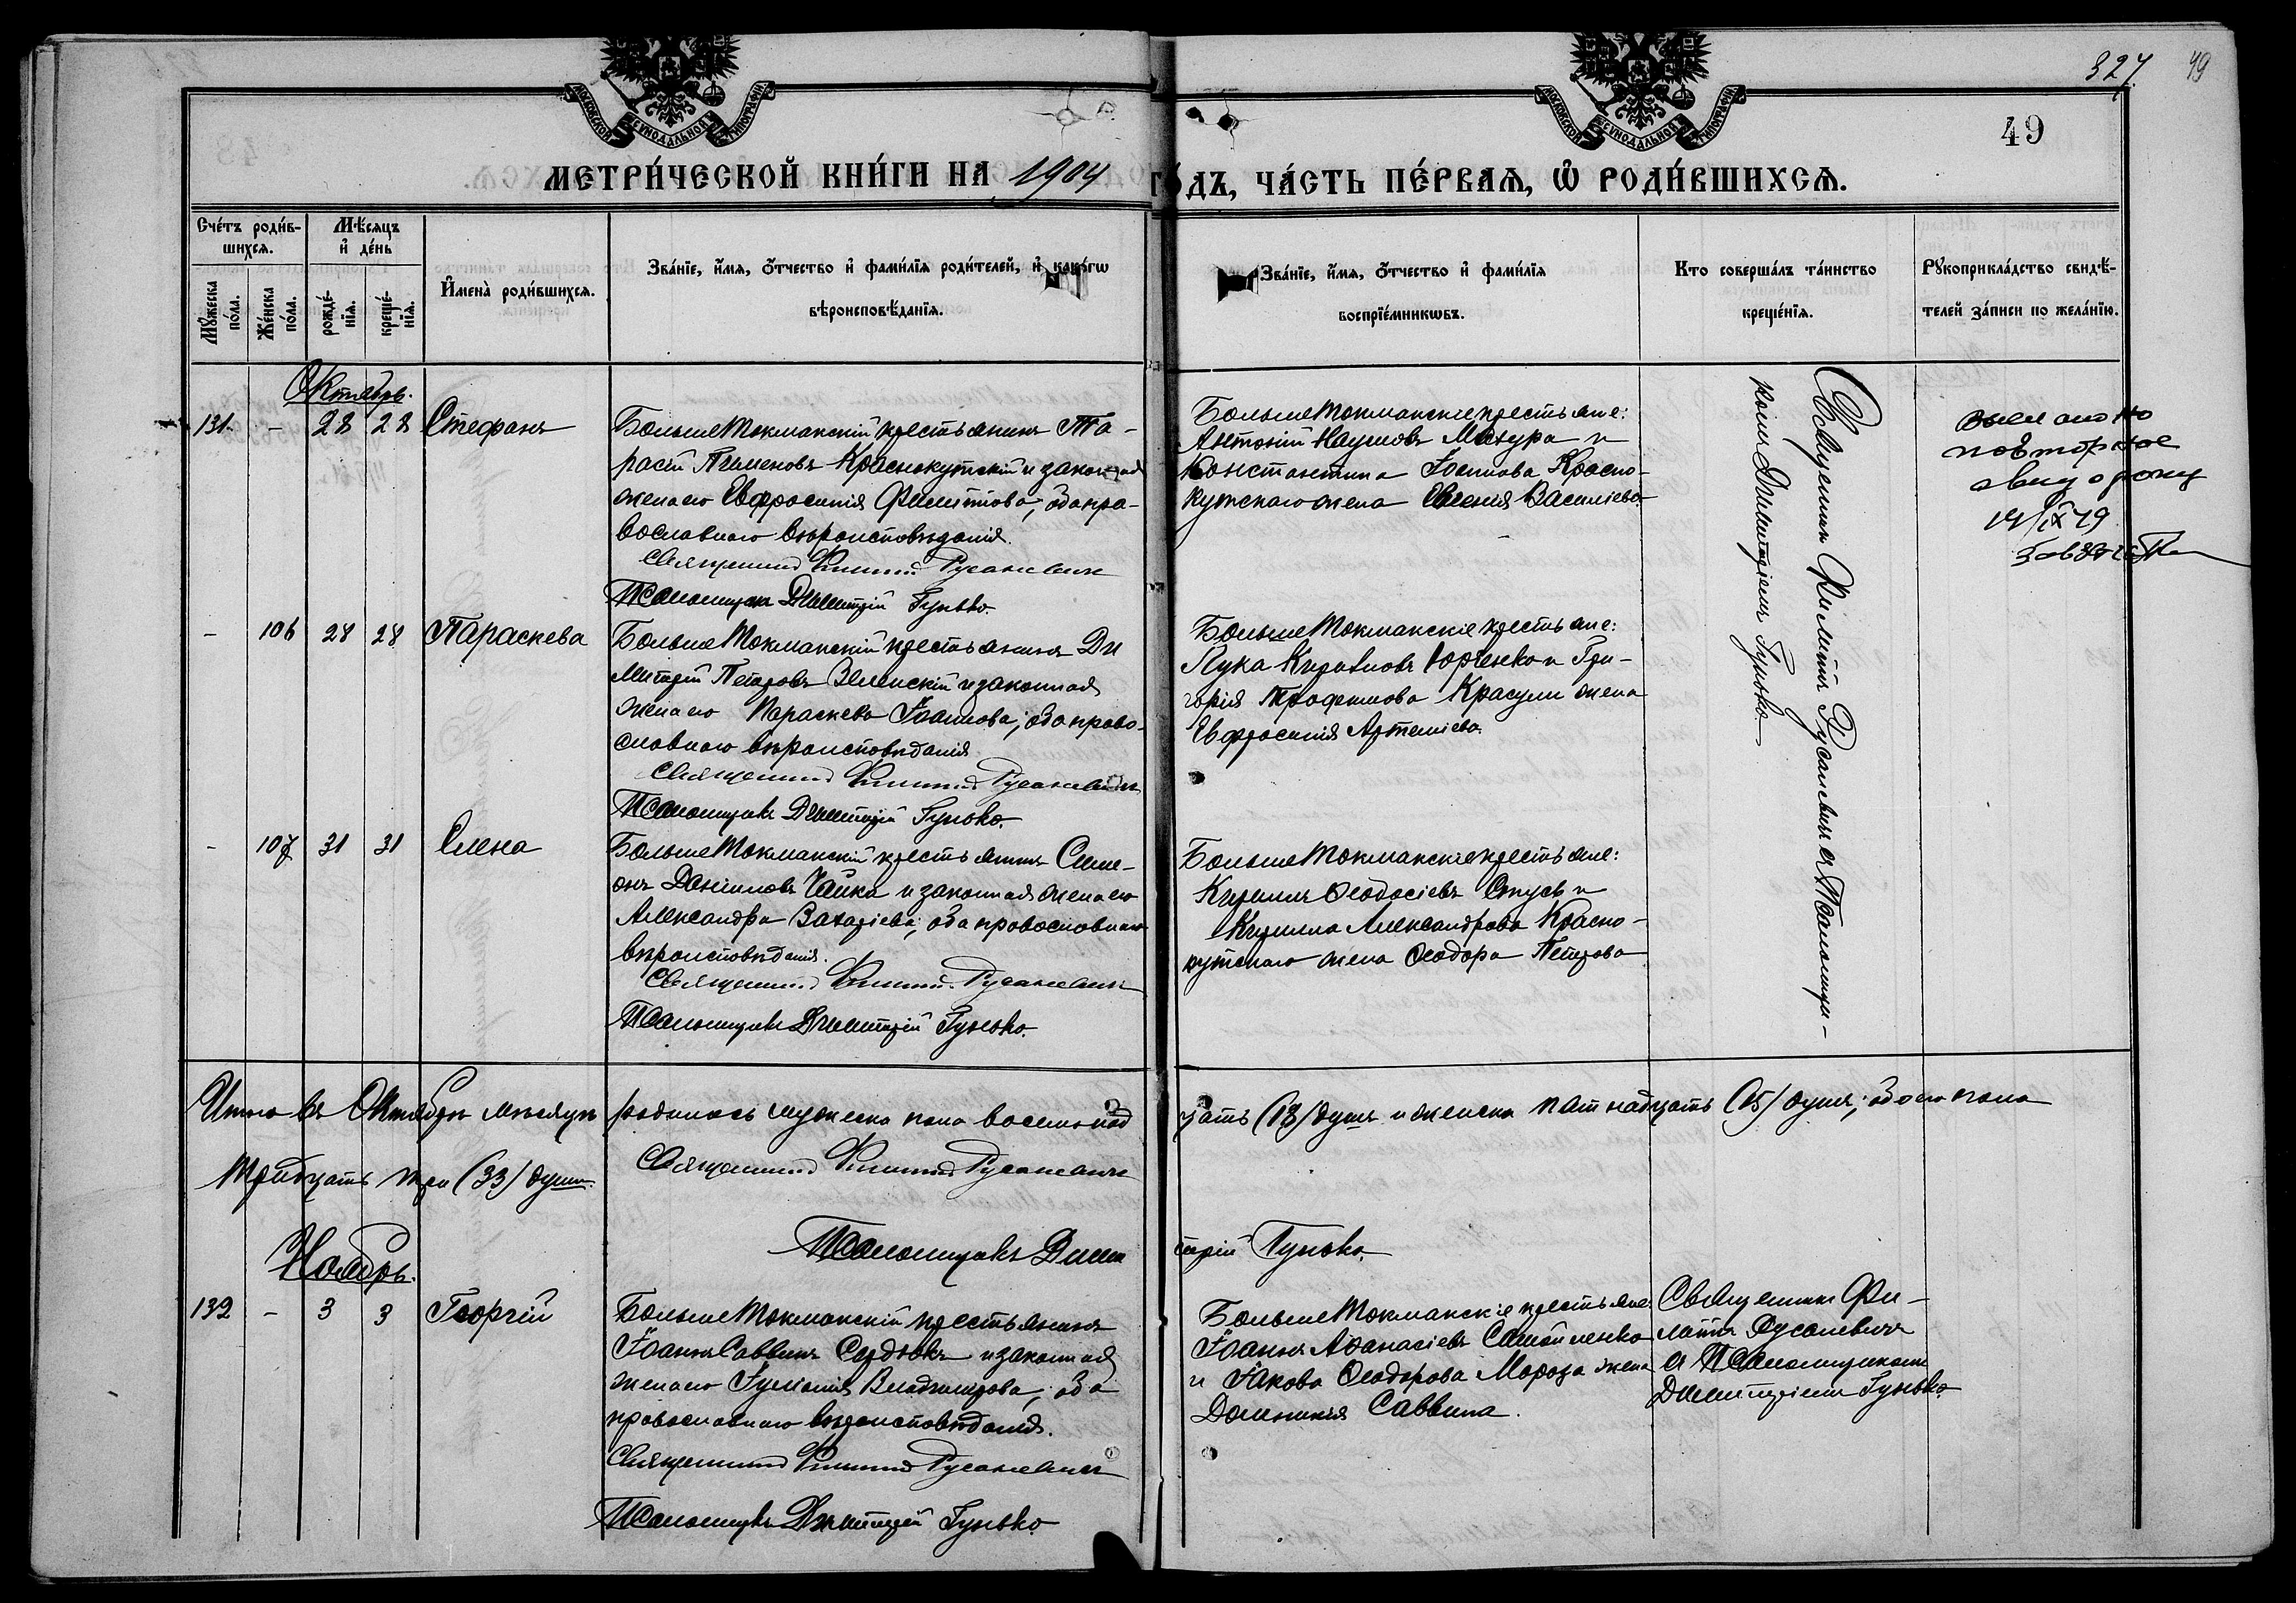 327 49
49
МОСКОВСКОЙ СѴНОДАЛЬНОЙ ТИПОГРАФІИ
МОСКОВСКОЙ СѴНОДАЛЬНОЙ ТИПОГРАФІИ
МЕТРИ́ЧЕСКОЙ КНИ́ГИ НА 1904 ГО́ДЪ, ЧА́СТЬ ПЕ́РВАѦ, Ѡ҆ РОДИ́ВШИХСѦ.
Сче́тъ роди́в-
шихсѧ.
Мѣ́сѧцъ
и҆ де́нь
Мꙋ́жеска
по́ла.
Же́нска
по́ла.
рожде́-
нїѧ.
креще́-
нїѧ.
И҆мена̀ роди́вшихсѧ.
Зва́нїе, и҆́мѧ, ѻ҆́тчество и҆ фами́лїѧ роди́телей, и҆ како́гѡ
вѣроисповѣ́данїѧ.
Зва́нїе, и҆́мѧ, ѻ҆́тчество и҆ фами́лїѧ
воспрїе́мникѡвъ.
Кто соверша́лъ та́инство
креще́нїѧ.
Рꙋкоприкла́дство свидѣ́-
телей за́писи по жела́нїю.
Октябрь.
131. - 28 28 Стефанъ
БольшеТокмакскій крестьянинъ Та-
расій Пименовъ Краснокутскій и законная
жена его Евфросинія Филиппова; оба пра-
вославнаго вѣроисповѣданія.
Священникъ Филиппъ Русаневичъ
Псаломщикъ Димитрій Гунько.
БольшеТокмакскіе крестьяне:
Антоній Наумовъ Мазура и
Константина Іоаннова Красно-
кутскаго жена Евгенія Васильева.
Священникъ Филиппъ Русаневичъ съ Псаломщи-
комъ Димитріемъ Гунько
выслано
повторное
свид о рожд
14/IX 79
- 106 28 28 Параскева
БольшеТокмакскій крестьянинъ Ди
митрій Петровъ Зеленскій и законная
жена его Параскева Іоаннова; оба право-
славнаго вѣроисповѣданія
Священникъ Филиппъ Русаневичъ
Псаломщикъ Димитрій Гунько.
БольшеТокмакскіе крестьяне:
Лука Кириловъ Юрченко и Гри-
горія Трофимова Красули жена
Евфросинія Артеміева.
- 107 31 31 Елена
БольшеТокмакскій крестьянинъ Симе-
онъ Даніиловъ Чайка и законная жена его
Александра Захаріева; оба православнаго
вѣроисповѣданія.
Священникъ Филиппъ Русаневичъ
Псаломщикъ Димитрій Гунько.
БольшеТокмакскіе крестьяне:
Кириллъ Ѳеодосіевъ Стусь и
Кирилла Александрова Красно-
кутскаго жена Ѳеодора Петрова
Итого въ Октябрѣ мѣсяцѣ родилось мужеска пола восемнад
цать (18) душъ и женска пятнадцать (15) душъ; обоего пола
тридцать три (33) души.
Священникъ Филиппъ Русаневичъ
Псаломщикъ Димитрій Гунько.
Ноябрь.
132 - 3 3 Георгій
БольшеТокмакскій крестьянинъ
Іоаннъ Саввинъ Сердюкъ и законная
жена его Іуліанія Владимірова; оба
православнаго вѣроисповѣданія.
Священникъ Филиппъ Русаневичъ
Псаломщикъ Димитрій Гунько
БольшеТокмакскіе крестьяне
Іоаннъ Аѳанасіевъ Самойленко
и Іакова Ѳеодорова Мороза жена
Домникія Саввина.
Священникъ Фи-
липпъ Русаневичъ
съ Псаломщикомъ
Димитріемъ Гунько.